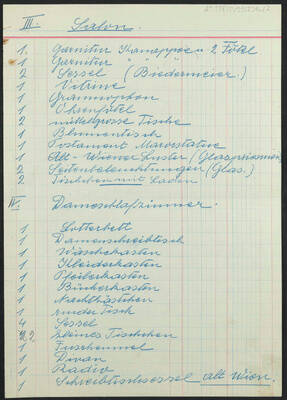 III Salon.
1 Garnitur Kanappee u 2 Fötel
1 Garnitur " " "
2 Sessel (Biedermeier.)
1 Vitrine
1 Grammophon
1 Ohrenfötel
2 mittelgrosse Tische
1 Blumentisch
1 Postament Marorstatue
1 Alt-Wiener Luster (Glasprismen)
2 Seitenbeleuchtungen (Glas.)
2 Tischchen mit Laden
IV. Dameschlafzimmer.
1 Lotterbett
1 Damenschreibtisch
1 Wäschekasten
1 Kleiderkasten
1 Pfeilerkasten
1 Bücherkasten
1 Nachtkästchen
1 runder Tisch
4 Sessel
2 kleines Tischchen
1
1 Divan
1 Radio
1 Schreibtischsessel alt Wien.